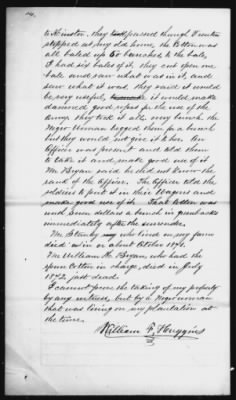 to Kinston, they passed through Trenton
stopped at my old home, the Cotton was
all baled up 50 bunches to the bale,
I had six bales of it, they cut open one
bale and saw what was in it, and
saw what it was, they said it would
be very useful, it would make
damned good rope for the use of the
Army, they took it all, every bunch the
Negro woman begged them for a bunch
but they would not give it to her. An
Officer was present and told them
to take it and make good use of it
Mr Bryan said he did not know the
rank of the Officer. The Officer told the
soldiers to put it in their Wagons and
make good use of it. That Cotton was
worth seven dollars a bunch in greenbacks
immediately after the surrender.
Mr Stanley who lived on my farm
died in or about October 1871.
Mr William H. Bryan, who had the
spun Cotton in charge, died in July
1872, just dead.
I cannot prove the taking of my property
by any witness, but by a Negro woman
that was living on my plantation at
the time.
William F. Huggins